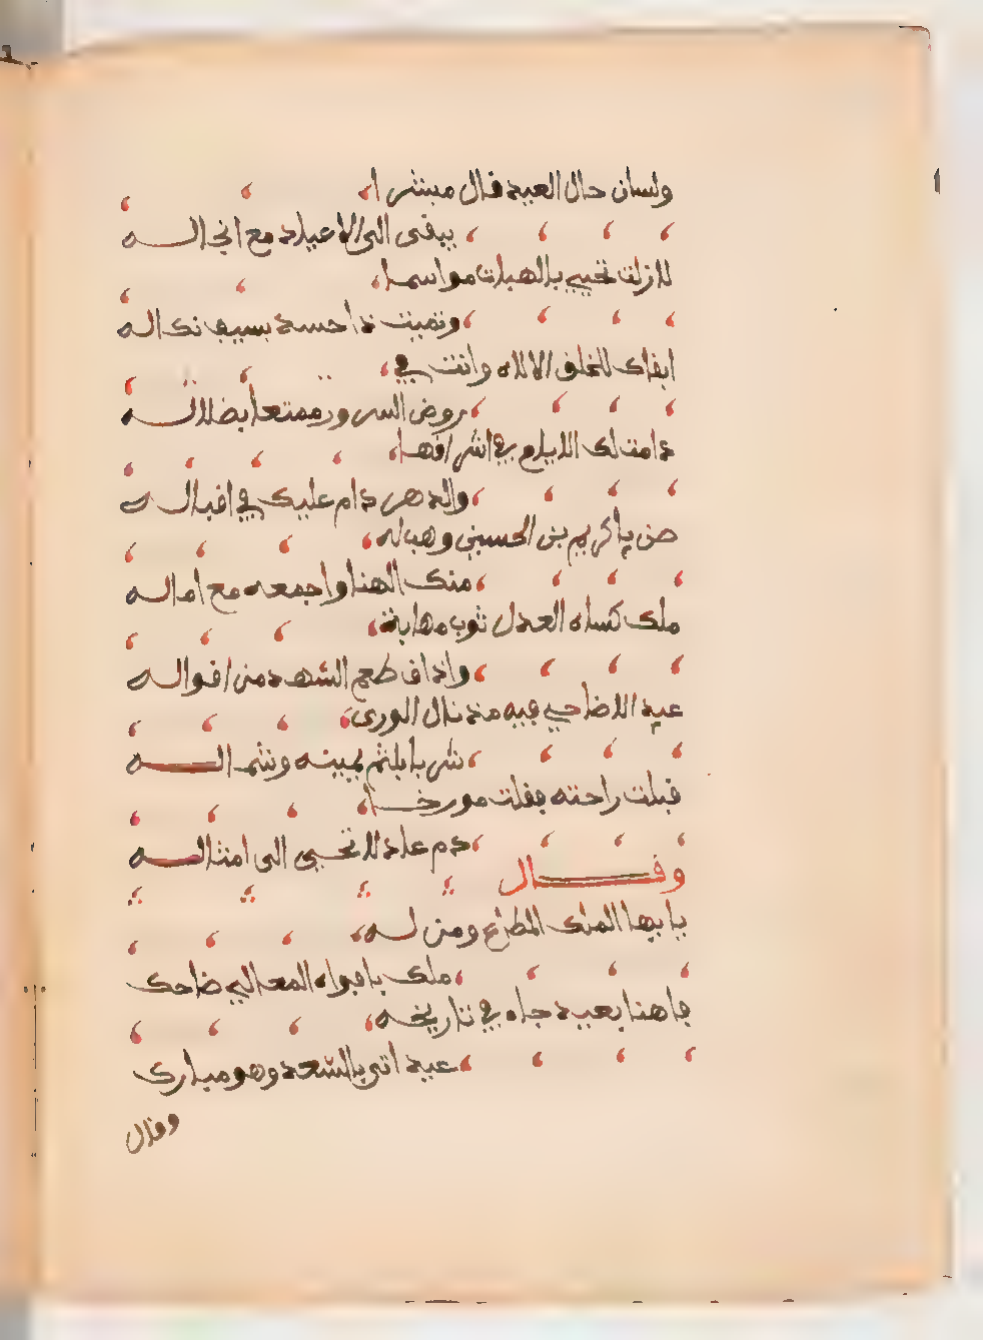 ولسان حال العيد قال مبشرا
يبقى الى الاعياد مع انجاله
لازلت تحيي بالهبات مواسما
وتميت ذا حسد بسيف نكاله
ابقاك للخلق الالاه وانت في
روض السرور ممتعا بضلاله
دامت لك الايام في اشراقها
والدهر دام عليك في اقباله
صن يا كريم بن الحسين وهب له
منك الهنا واجمعه مع اماله
ملك كساه العدل ثوب مهابة
واذاق طعم الشهد من اقواله
عيد الاضاحي فيه مذ نال الورى
شربا بلثم يمينه وشماله
قبلت راحته فقلت مورخا
دم عائدا لا تحيى الى امثاله
وقال
يا ايها الملك المطاع ومن له
ملك بافواه المعالي ضاحك
فاهنا بعيد جاء في تاريخه
عيد اتى بالسعد وهو مبارك
وقال